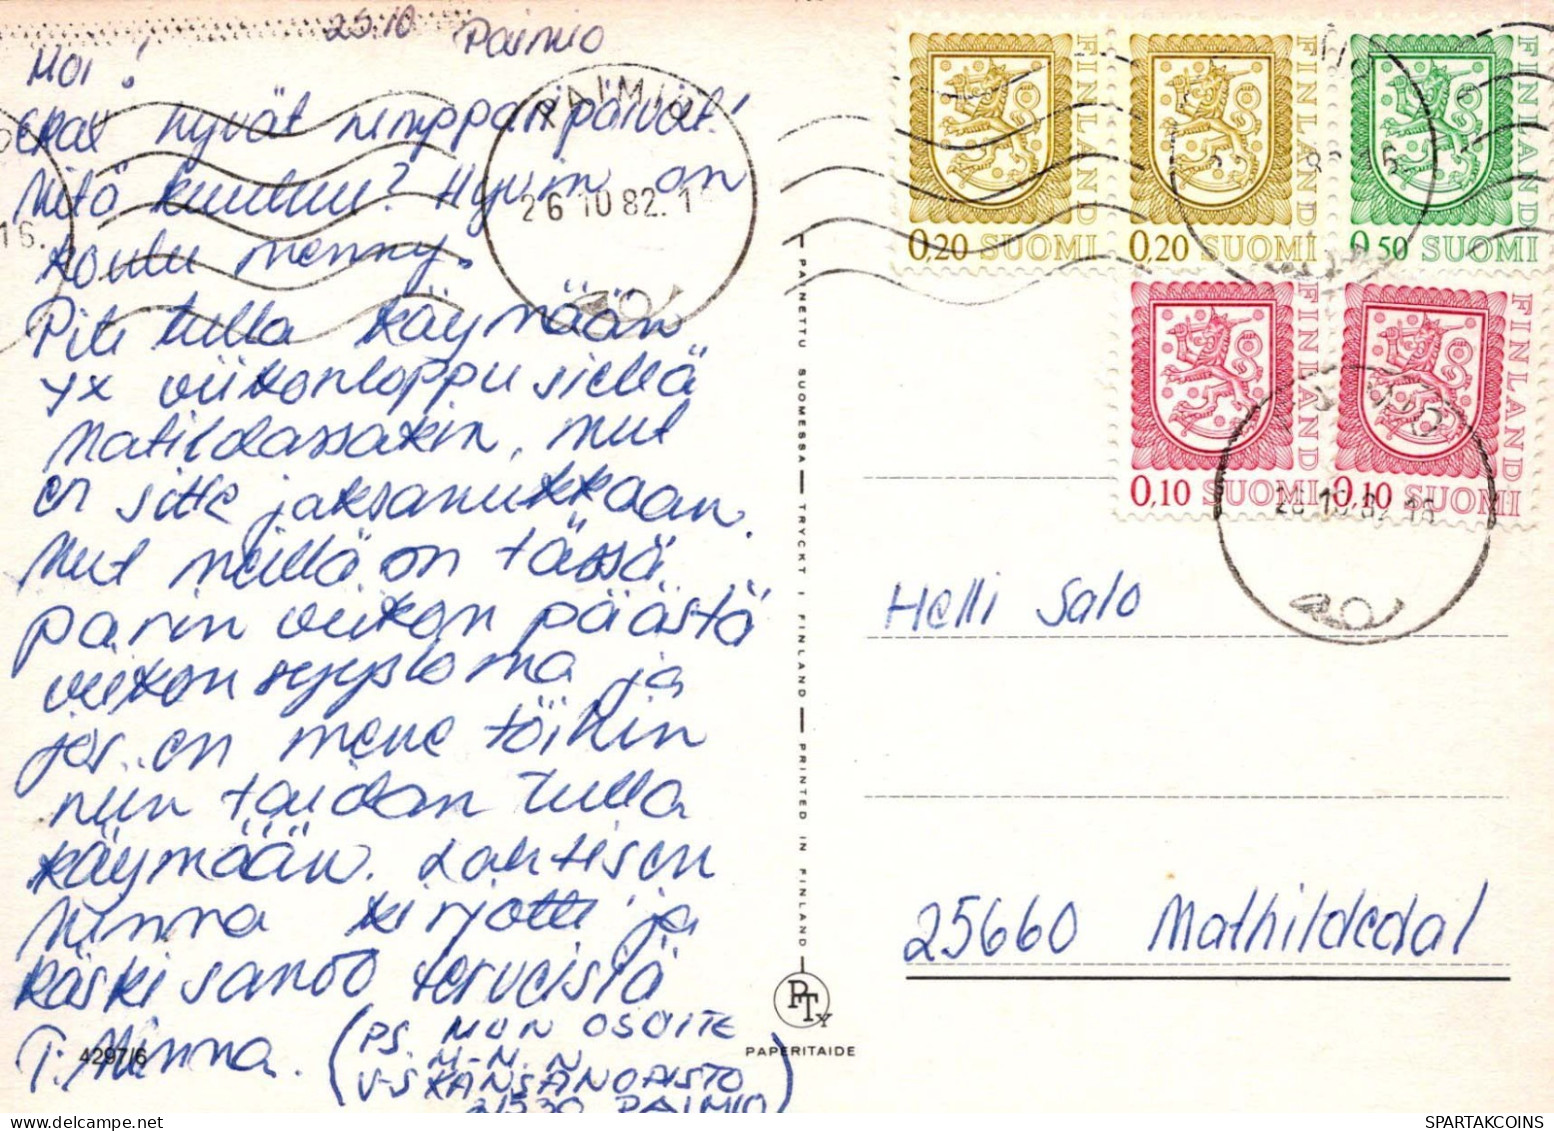 25.10 Paimio
Moi!
hyvät nimppäripäivät!
Mitä kuuluu? Hyvin on
koulu menny.
Piti tulla käymään
yx viikonloppu siellä
Matildassakin, mut
en sitte jaksanukkaan.
Mut meillä on tässä
parin viikon päästä
viikon syysloma ja
jos en mene töihin
niin taidan tulla
käymään. Lahtisen
Minna kirjotti ja
käski sanoo terveisiä
T: Minna.
(PS. MUN OSOITE
M-N. N
V-S KANSANOPISTO
21530 PAIMIO)
4297/6
PAIMIO
26.10.82.1
16.
PAINETTU SUOMESSA — TRYCKT I FINLAND — PRINTED IN FINLAND
PTy
PAPERITAIDE
FINLAND
0,20 SUOMI
FINLAND
0,20 SUOMI
FINLAND
0,50 SUOMI
FINLAND
0,10 SUOMI
FINLAND
0,10 SUOMI
26.10.82.16
Helli Salo
25660 Mathildedal
SPARTAKCOINS.COM